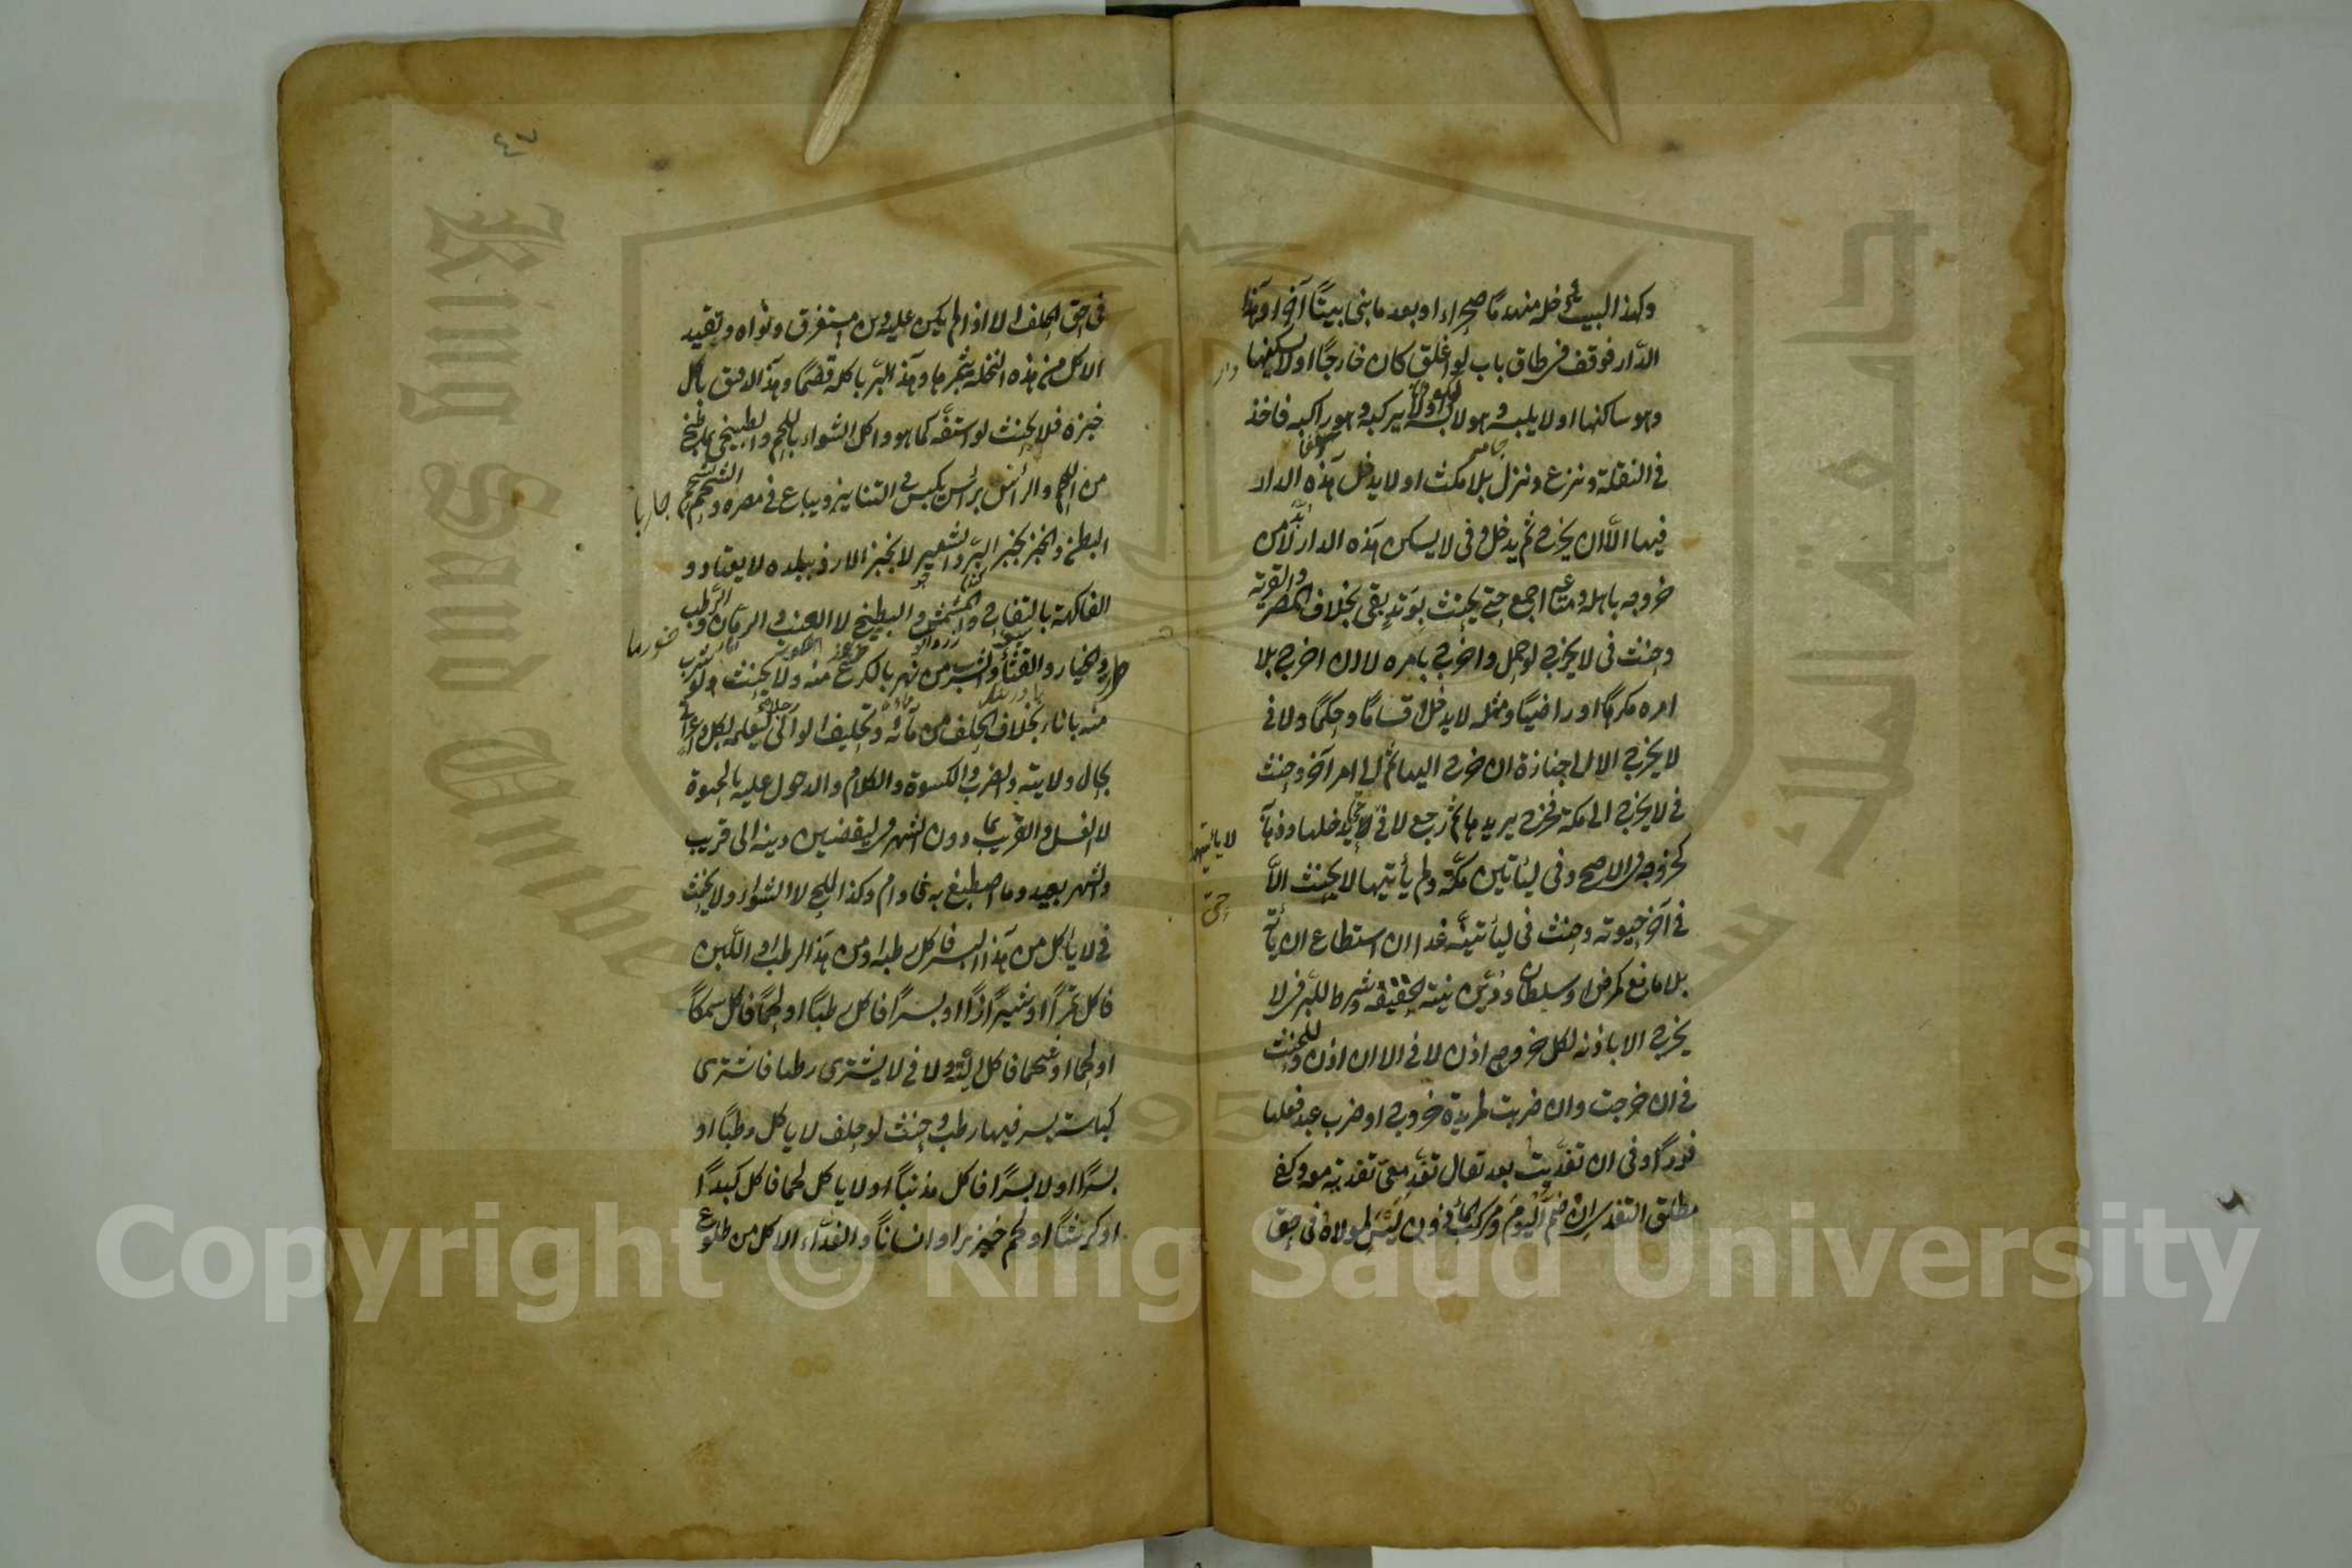 وكهذا البيت فدخله منهدما صحراء او بعد ما بنى بيتا آخر او هذا
الدار فوقف في طاق باب لو اغلق كان خارجا او لا يسكنها
وهو ساكنها او لا يلبسه وهو لابسه او لا يركبه وهو راكبه فاخذ
في النقلة ونزع ونزل بلا مكث او لا يدخل هذه الدار
فيها الا ان يخرج ثم يدخل وفى لا يسكن هذه الدار لا بد من
خروجه باهله ومتاعه اجمع حتى يحنث بوتد بقى بخلاف المصر والقرية
وحنث فى لا يخرج لو حمل واخرج بامره لا ان اخرج بلا
امره مكرها او راضيا ومثله لا يدخل اقساما وحكما ولا فى
لا يخرج الا الى جنازة ان خرج اليها ثم الى امر آخر وحنث
فى لا يخرج الى مكة فخرج يريدها ثم رجع لا فى لا يدخلها وذهابه
كخروجه فى الاصح وفى ليأتين مكة ولم يأتيها لا يحنث الا
فى آخر حيوته وحنث فى ليأتينه غدا ان استطاع ان لم يأته
بلا مانع كمرض او سلطان ودين نيته الحقيقة وشرط للبر فى لا
يخرج الا باذنه لكل خروج اذن لا فى الا ان اذن وللحنث
فى ان خرجت وان ضربت لمريدة خروج او ضرب عبد فعلها
فورا وفى ان تغديت بعد تعال تغد معى تغديه معه وكفى
مطلق التغدى ان ضم اليوم ومركب المأذون ليس لمولاه فى حق
لا ياتيها
حتى
دار
٤٧
فى حق الحلف الا اذا لم يكن عليه دين مستغرق ونواه وتقيد
الاكل من هذه النخلة بثمرها وهذا البر باكله قضما وهذا الدقيق باكل
خبزه فلا يحنث لو استفه كما هو واكل الشواء باللحم والطبيخ بما طبخ
من اللحم والرأس برأس يكبس فى التنانير ويباع فى مصره والشحم بشحم
البطن والخبز بخبز البر والشعير لا بخبز الارز ببلده لا يعتاد و
الفاكهة بالتفاح والمشمش والبطيخ لا العنب والرمان والرطب
والخيار والقثاء والشرب من نهر بالكرع منه ولا يحنث ولو شرب
منه باناء بخلاف الحلف من مائه وتحليف الوالى ليعلمه بكل داعر
بحال ولايته والضرب والكسوة والكلام والدخول عليه بالحيوة
لا الغسل والقريب بما دون الشهر فى ليقضين دينه الى قريب
والشهر بعيد وما اصطبغ به فادام وكذا الملح لا الشواء ولا يحنث
فى لا يأكل من هذا البسر فاكل رطبه او من هذا الرطب او اللبن
فاكل تمرا او شيرازا او بسرا فاكل رطبا او لحما فاكل سمكا
او لحما او شحما فاكل الية ولا فى لا يشترى رطبا فاشترى
كباسة بسر فيها رطب وحنث لو حلف لا ياكل رطبا او
بسرا او لا بسرا فاكل مذنبا او لا ياكل لحما فاكل كبدا
او كرشا او لحم خنزير او انسانا والغداء الاكل من طلوع
Copyright © King Saud University